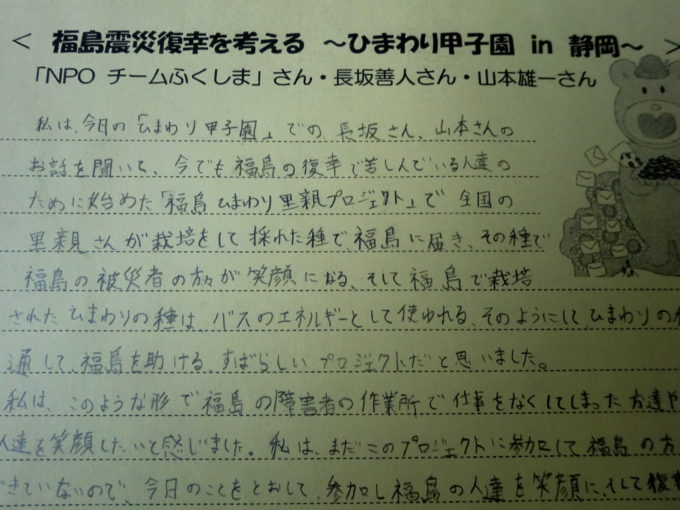 < 福島震災復幸を考える ～ひまわり甲子園 in 静岡～ >
「NPO チームふくしま」さん・長坂善人さん・山本雄一さん
私は、今日の「ひまわり甲子園」での、長坂さん、山本さんの
お話を聞いて、今でも福島の復幸で苦しんでいる人達の
ために始めた「福島ひまわり里親プロジェクト」で全国の
里親さんが栽培をして採れた種で、福島に届き、その種で
福島の被災者の方々が笑顔になる、そして福島で栽培
されたひまわりの種は、バスのエネルギーとして使われる、そのようにして、ひまわりの
通して福島を助ける、すばらしいプロジェクトだと思いました。
私は、このような形で福島の障害者の作業所で仕事をなくしてしまった方達や
人達を笑顔したいと感じました。私は、まだこのプロジェクトに参加して福島の方
できていないので、今日のことをとおして、参加し福島の人達を笑顔に、そして復